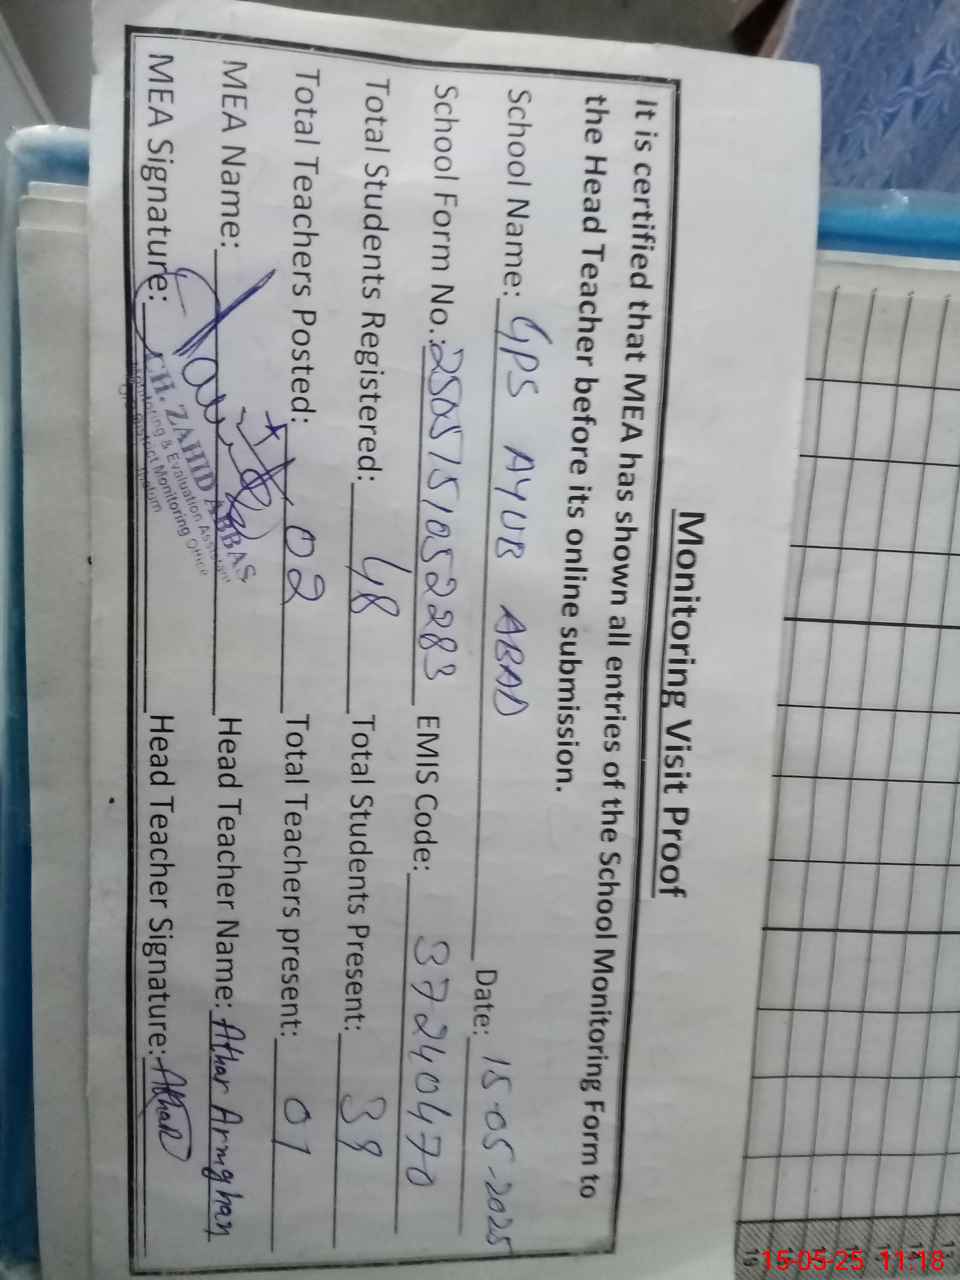 Monitoring Visit Proof
It is certified that MEA has shown all entries of the School Monitoring Form to
the Head Teacher before its online submission.
School Name: GPS AYUB ABAD Date: 15-05-2025
School Form No.: 2505151052283 EMIS Code: 37240470
Total Students Registered: 48 Total Students Present: 39
Total Teachers Posted: 02 Total Teachers present: 01
MEA Name: Head Teacher Name: Athar Armghan
MEA Signature: Head Teacher Signature: Athar
CH. ZAHID ABBAS
Monitoring & Evaluation Assistant
District Monitoring Office
15-05-25 11:18